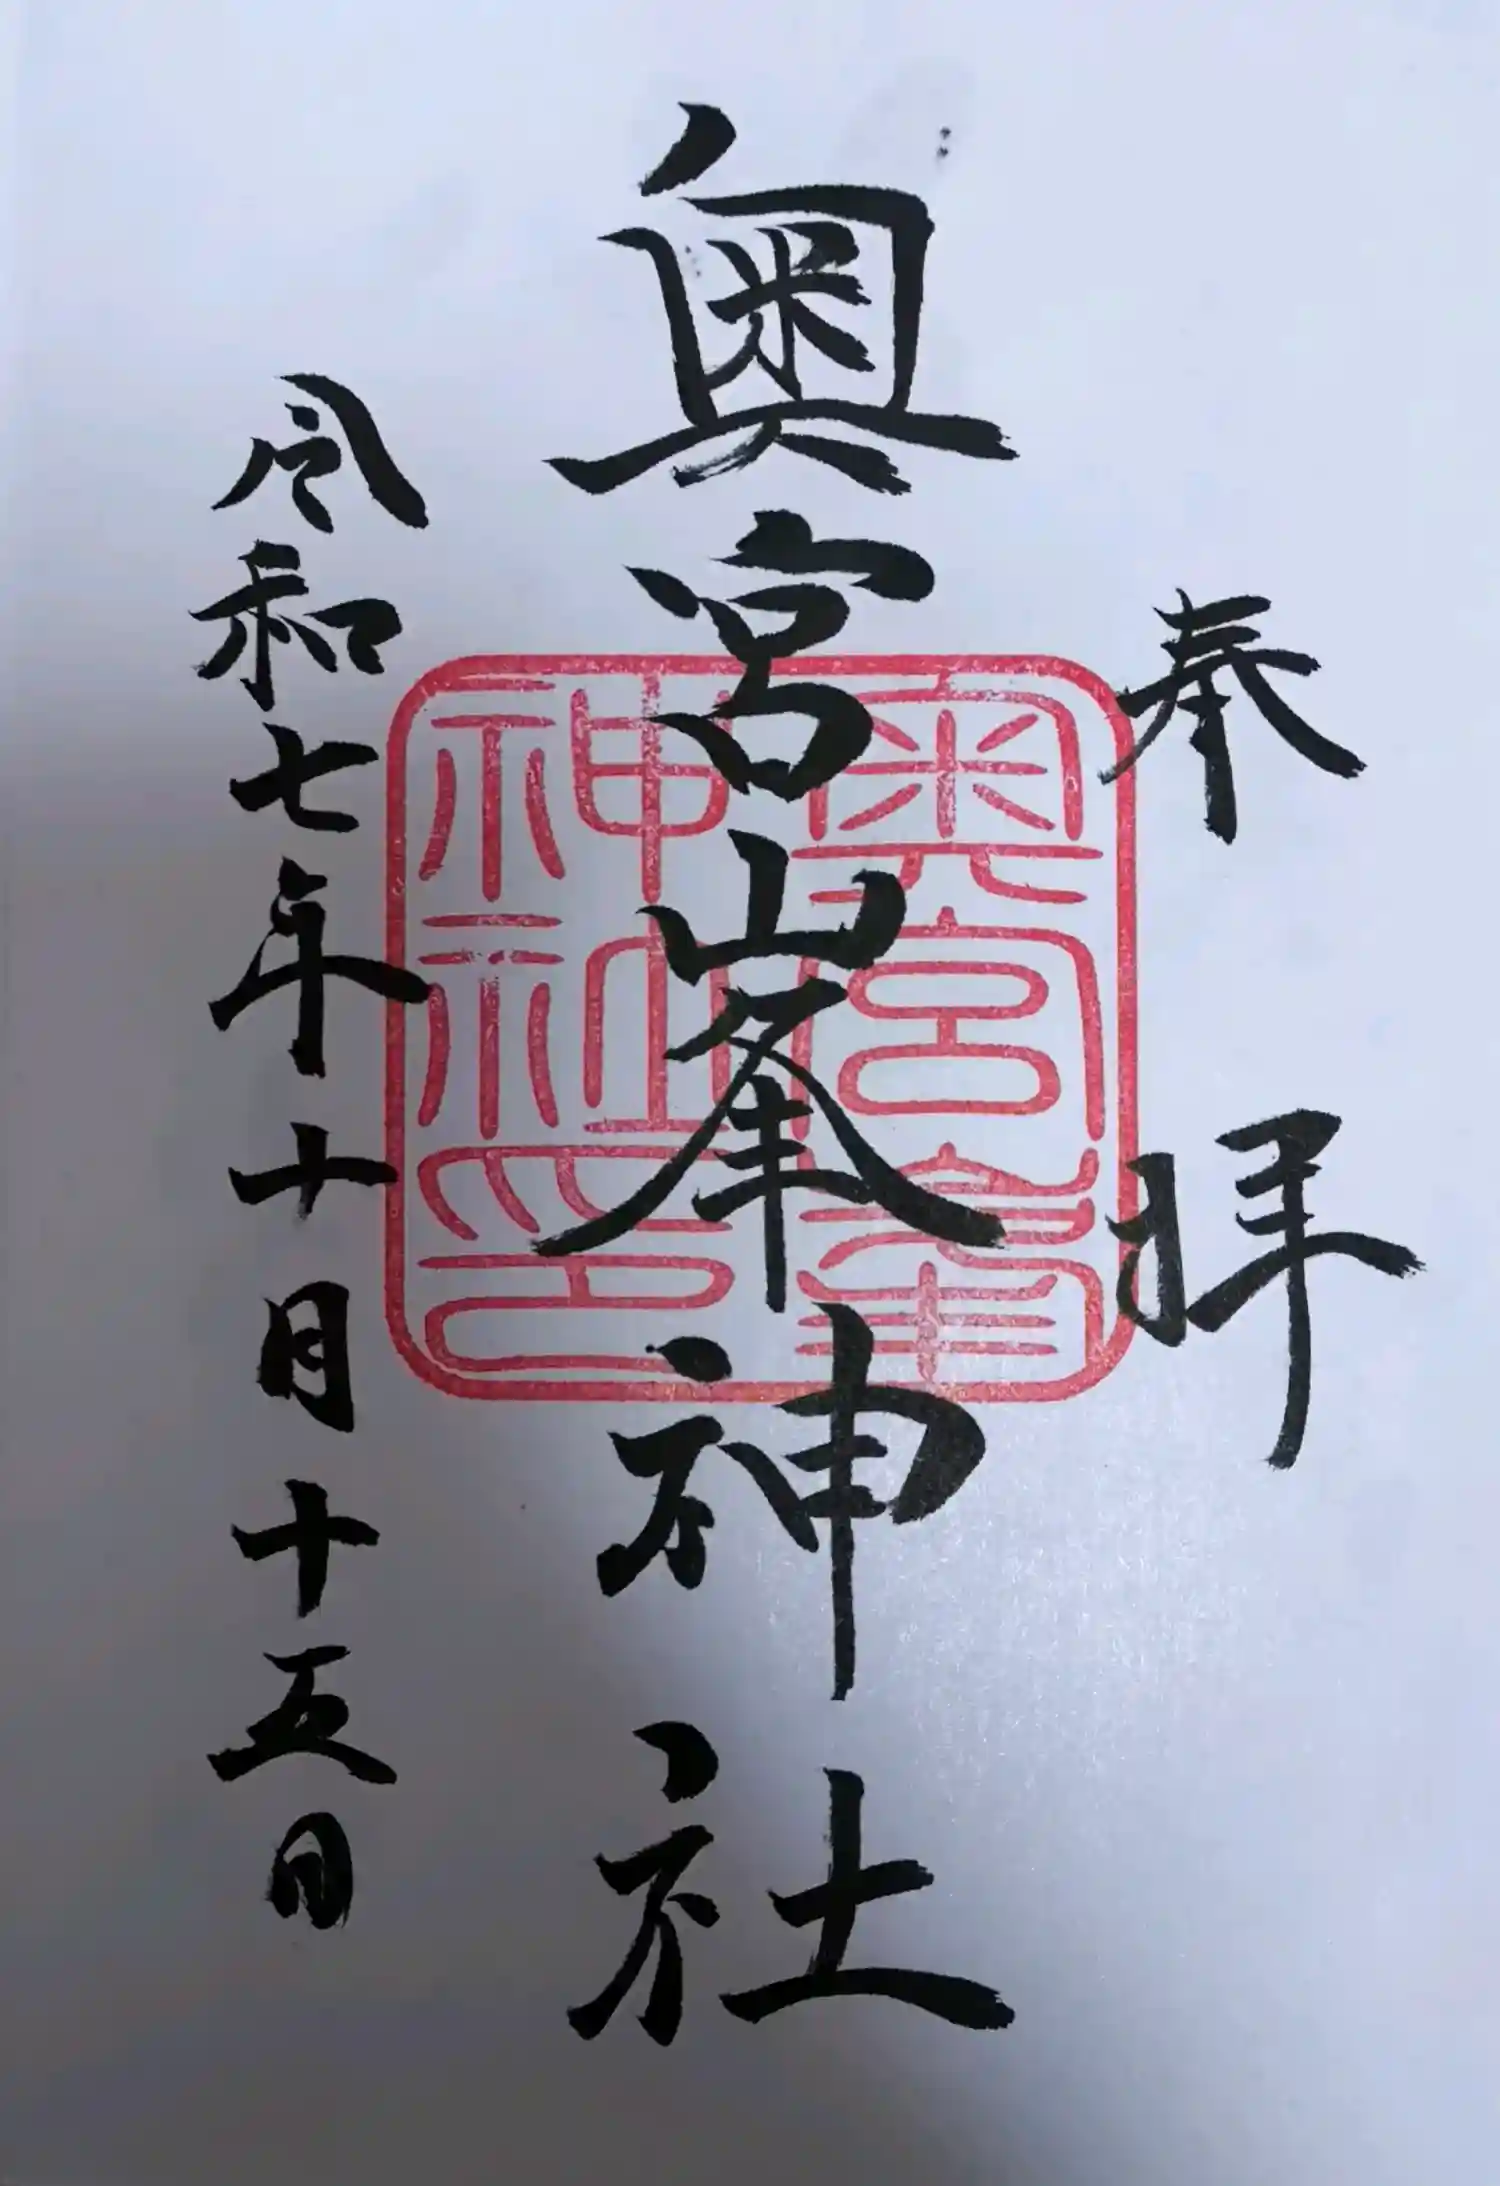 奉拝
奥宮山峯神社
令和七年十月十五日
奥宮峯
神社印